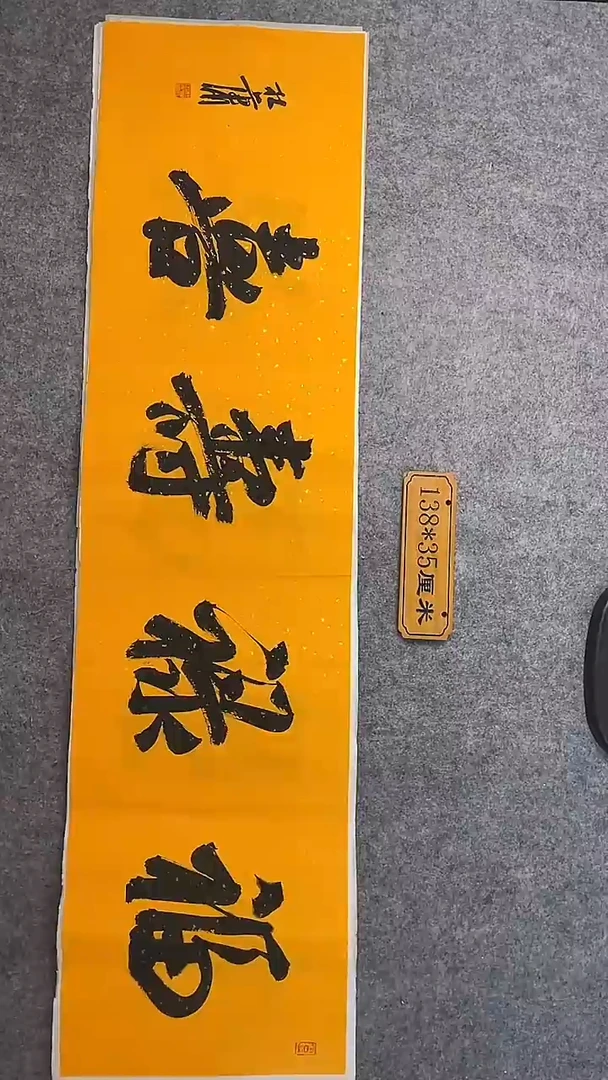 福禄寿喜
138*35厘米